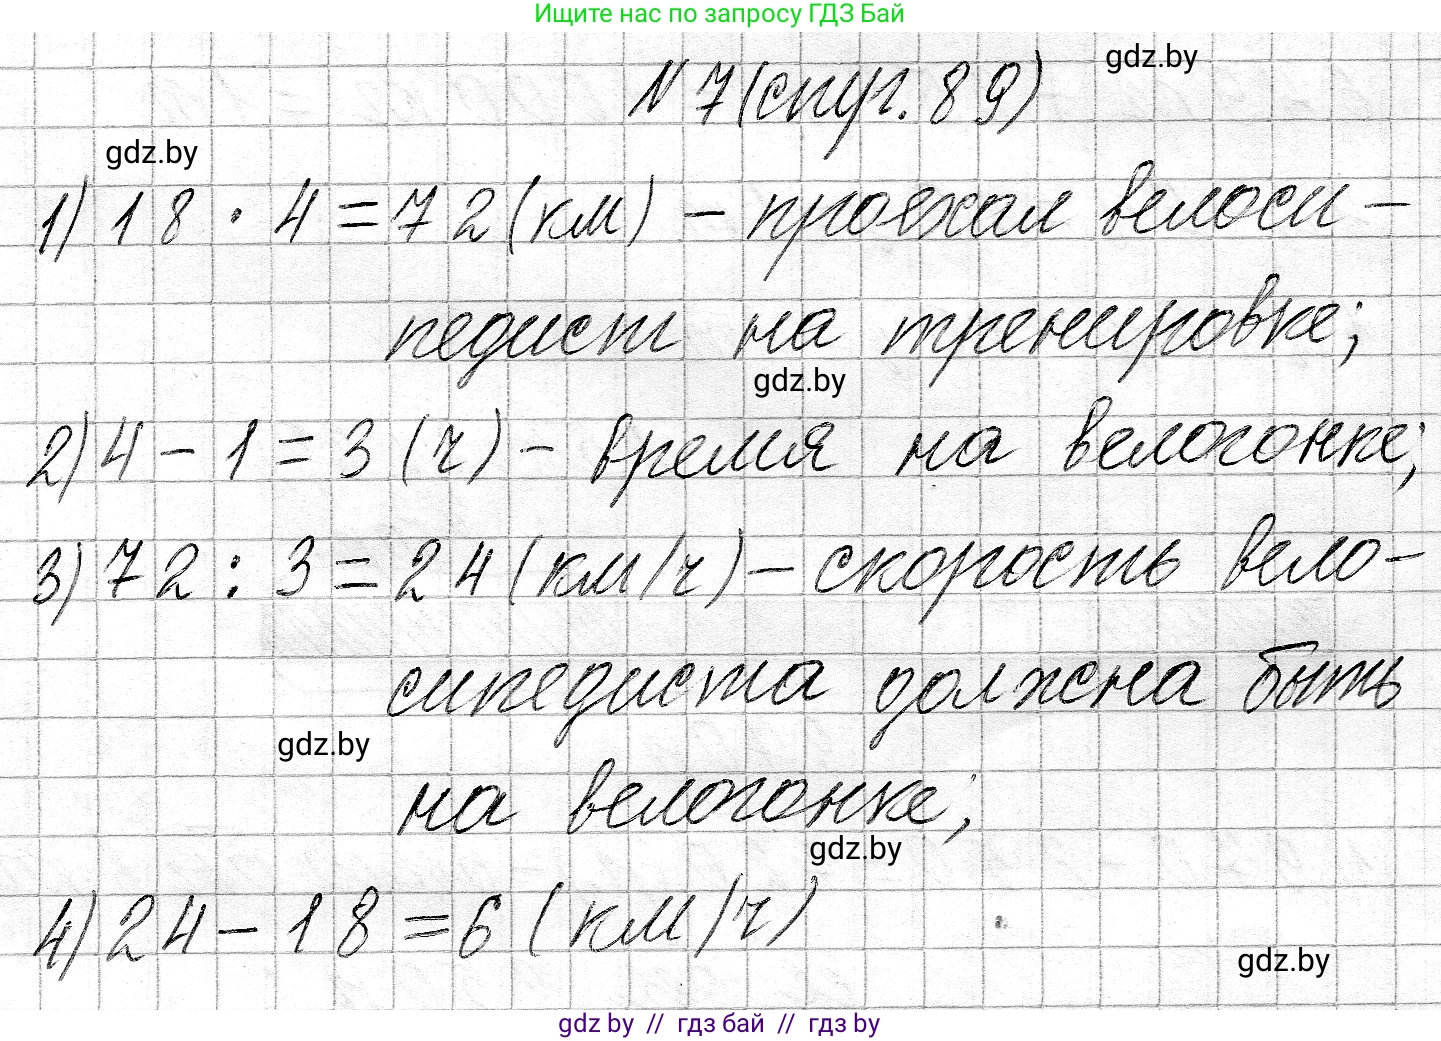 Ищите нас по запросу ГДЗ Бай
gdz.by
N 7 (стр. 89)
gdz.by
1) 18 · 4 = 72 (км) – проехал велоси –
педист на тренировке;
gdz.by
2) 4 – 1 = 3 (ч) – время на велогонке;
3) 72 : 3 = 24 (км/ч) – скорость вело –
сипедиста должна быть
gdz.by
на велогонке;
gdz.by
4) 24 – 18 = 6 (км/ч)
gdz.by
gdz by // гдз бай // гдз by